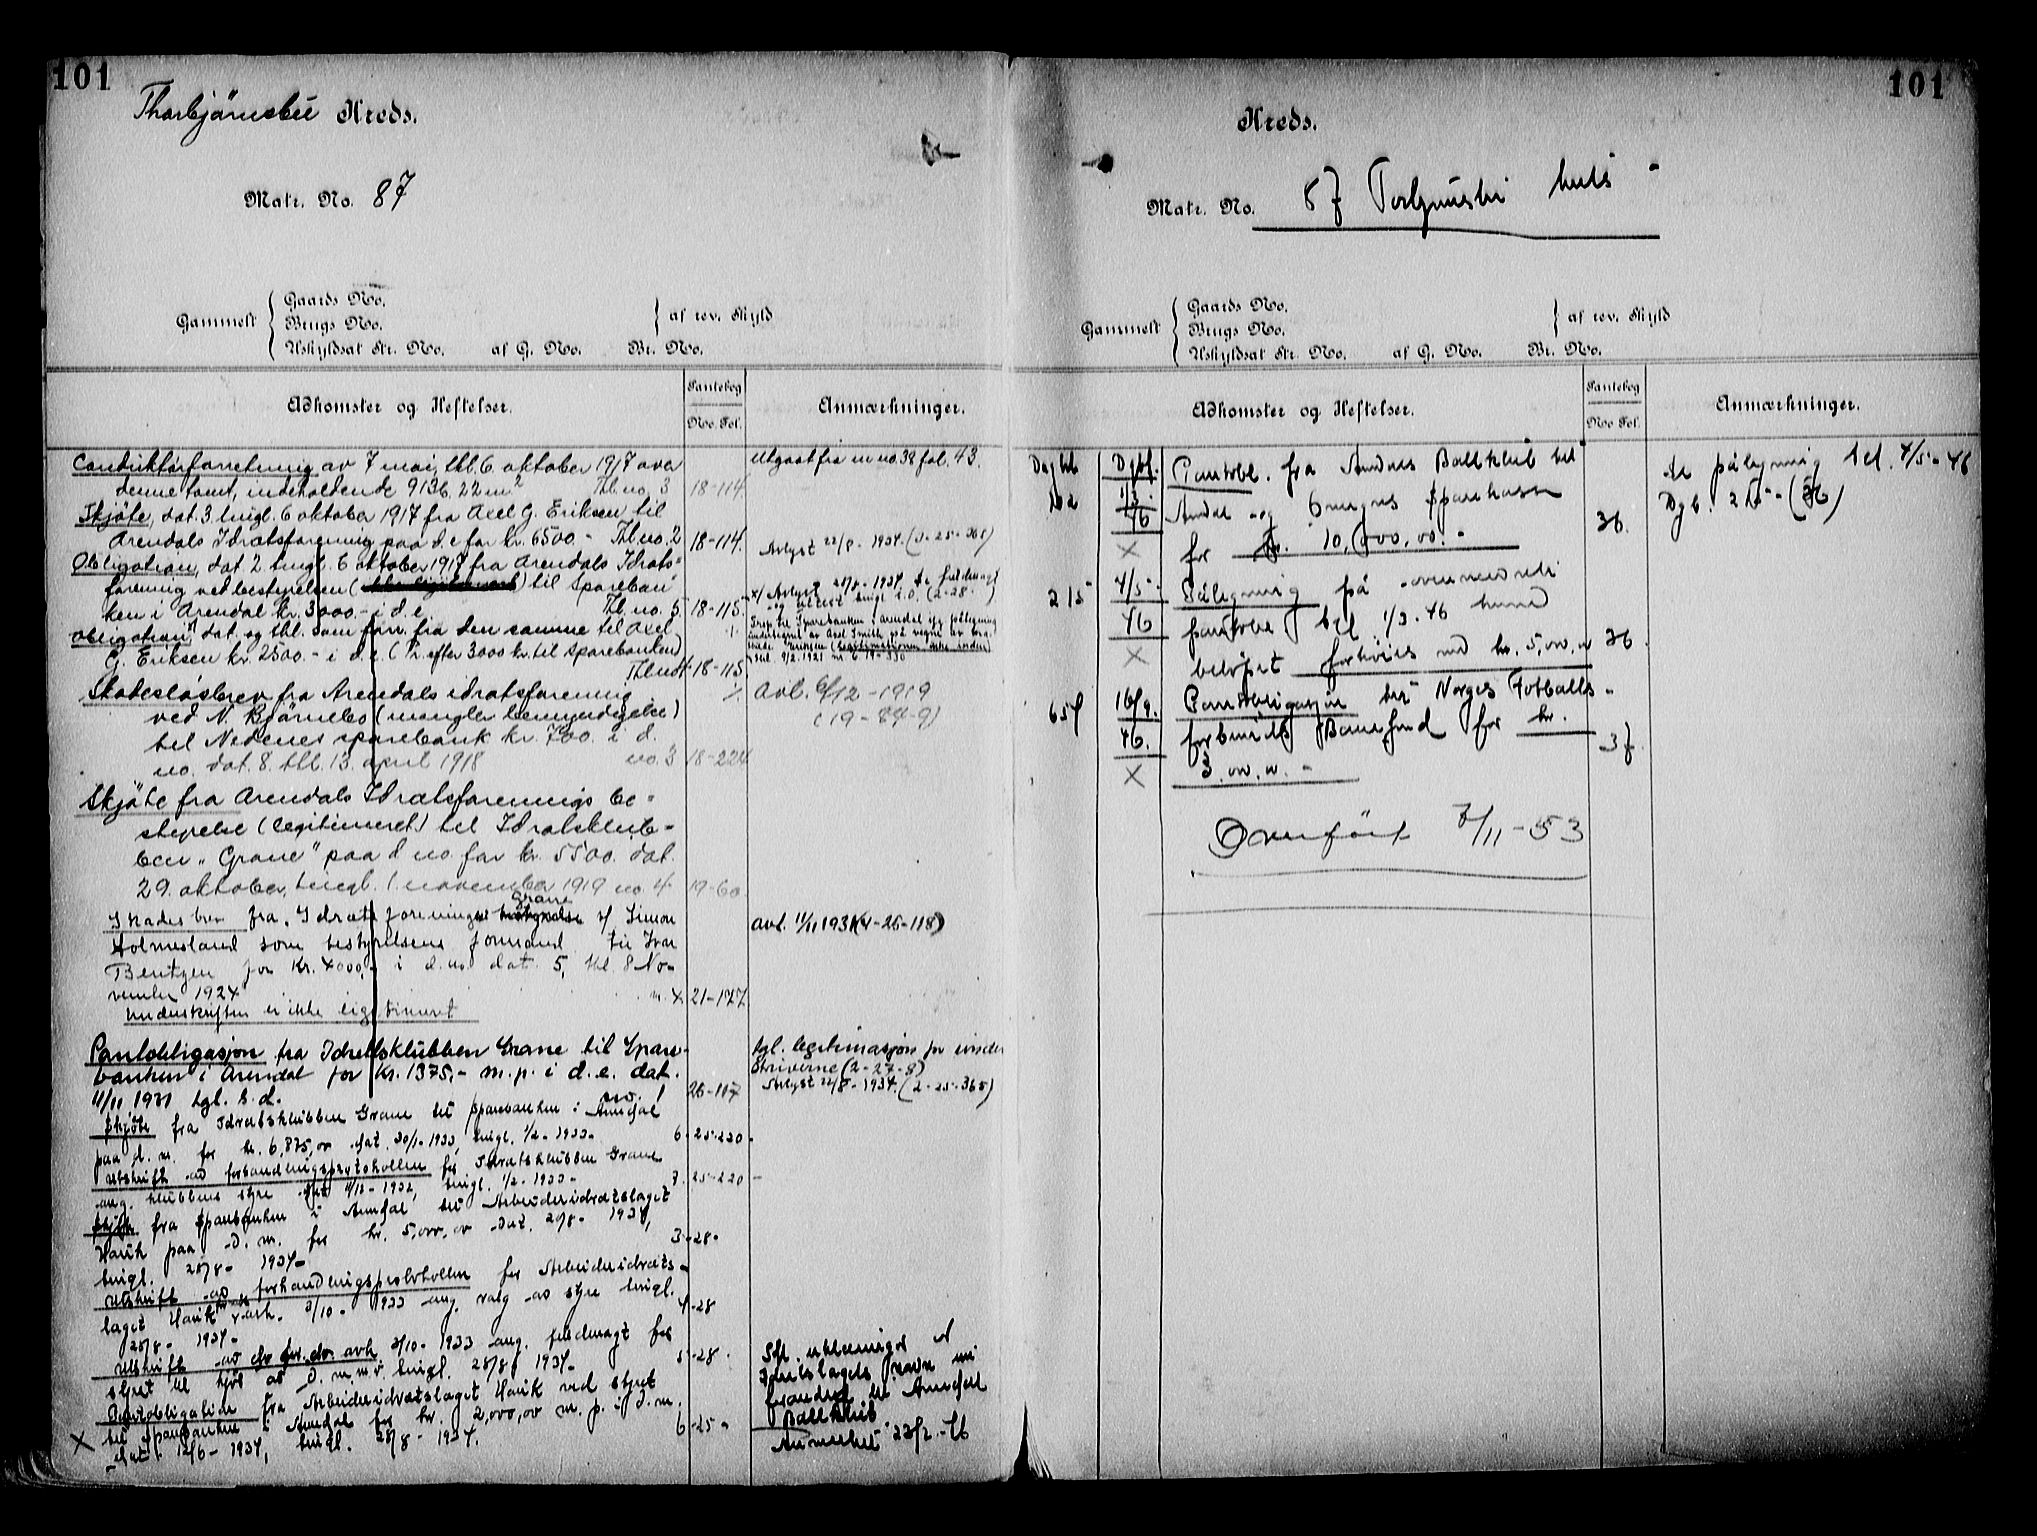 101
Thorbjørnsbu Kreds.
Matr. No. 87
Gammelt
Gaards No.
Brugs No.
Uskyldsat Str. No. af G. No. Br. No.
af rev. Skyld
Adkomster og Heftelser.
Pantebog
No. Fol.
Anmærkninger.
Konduktørforretning av 7 mai, tbl. 6. oktober 1917 over
denne tomt, indeholdende 9136,22 m² Tbl. no. 3 18-114.
Utgaat fra m no. 38 fol. 43.
Skjøte, dat. 3. tingl. 6 oktober 1917 fra Axel G. Eriksen til
Arendals Idrætsforening paa d. e for kr. 6500.- Tbl. no. 2 18-114.
Obligation, dat 2. tingl. 6 oktober 1917 fra Arendals Idræts-
forening ved bestyrelsen til Spareban
ken i Arendal kr. 3000.- i d. e. Tbl. no. 5 18-115.
Avlyst 22/8 - 1934. (2-25-365)
Obligation, dat. og tbl. som forr. fra den samme til Axel
G. Eriksen kr. 2500.- i d. e. (Pr. efter 3000 kr. til Sparebanken)
18-115.
Skadesløsbrev fra Arendals idrætsforening
ved N. Bjørnebo (mangler bemyndigelse)
til Nedenes sparebank kr. 700. i d.
no. dat. 8. tbl. 13. april 1918 no. 3 18-224
Avl. 6/12 - 1919
(19-84-9)
Skjøte fra Arendals Idrætsforenings be-
styrelse (legitimeret) til Idrætsklub-
ben „Grane" paa d no. for kr. 5500. dat.
29. oktober, tingl. 1. november 1919 no. 4 19-60.
Skadesbrev fra Idrætsforeningen Grane v/ Simon
Holmesland som bestyrelsens formand til Ivar
Bentzen for Kr. 4000,- i d. no. dat. 5, tbl. 8 No-
vember 1924 n. 4 21-177.
Underskriften er ikke legitimeret
avl. 11/11 1931 (4-26-118)
Pantobligasjon fra Idrettsklubben Grane til Spare-
banken i Arendal for Kr. 1375,- m. p. i d. e. dat.
11/11 1931 tgl. s. d. no. 1 26-117
tgl. legitimasjon for under
skriverne (2-27-8)
Avlyst 22/8 - 1934. (2-25-365)
Skjøte fra Idrætsklubben Grane til Sparebanken i Arendal
paa d. m. for kr. 6,875,00 dat. 30/1 - 1933, tingl. 1/2 - 1933 - 6-25-220-
Utskrift av forhandlingsprotokollen for Idrætsklubben Grane
ang. klubbens styre 1932, tingl. 1/2 - 1933 - 7-25-220-
Skjøte fra Sparebanken i Arendal til Arbeideridrætslaget
Hauk paa d. m. for kr. 5,000,00 dat. 20/8 - 1934,
tingl. 28/8 - 1934 - 3-28-
Utskrift av forhandlingsprotokollen for Arbeideridræts-
laget Hauk 3/10 - 1933 ang. valg av styre tingl.
28/8 - 1934 - 4-28
Utskrift av do for do avh. 3/10 - 1933 ang. fuldmagt for
styret til kjøp av d. m. m. v. tingl. 28/8 1934 - 5-28.
Pantobligation fra Arbeideridrætslaget Hauk ved styret
til Sparebanken i Arendal for kr. 2,000,00 m. p. i d. m.
dat. 12/6 - 1934, tingl. 28/8 - 1934. 6-25-
X
Idrettslagets navn nu
forandret til Arendal
Ballklub
Anmerket 23/2 - 46
101
Kreds.
Matr. No. 87
Gammelt
Gaards No.
Brugs No.
Uskyldsat Str. No. af G. No. Br. No.
af rev. Skyld
Adkomster og Heftelser.
Pantebog
No. Fol.
Anmærkninger.
Pantobl. fra Arendals Ballklub til
Arendal og Omegns Sparekasse
for kr. 10,000,00.- 36.
215 4/5 - 46 X Påtegning på ovennevnte
pantobl tgl 1/3 . 46 hvorved
beløpet forhøies med kr. 5,000,00 36.
Se påtegning tgl. 4/5 - 46
Dgb. 215 - (36)
657 16/9. 46. X Pantobligasjon til Norges Fotballs-
forbunds Banefond for kr.
3.000.00.- 37.
Overført 7/11 - 53